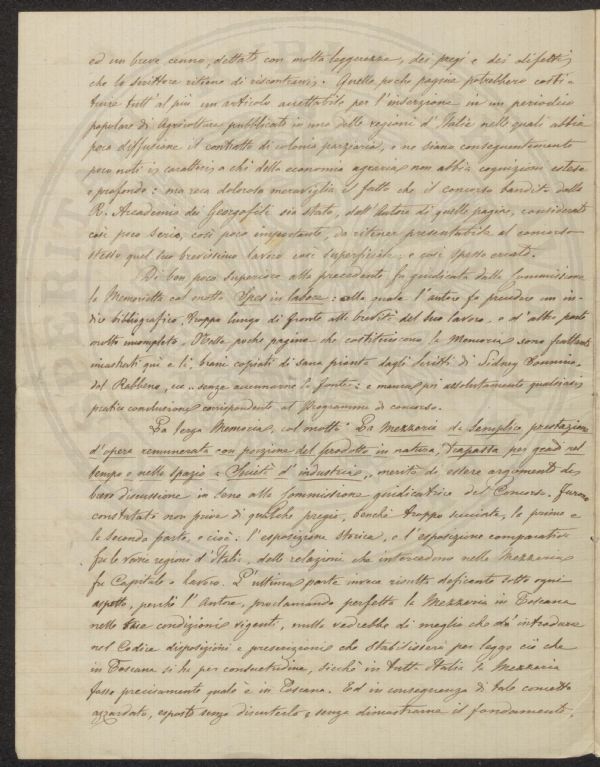 ed un breve cenno, dettato con molta leggerezza, dei pregi e dei difetti
che lo scrittore ritiene di riscontrarvi. Quelle poche pagine potrebbero costi-
tuire tutt'al più un articolo accettabile per l'inserzione in un periodico
popolare di Agricoltura pubblicato in una delle regioni d'Italia nelle quali abbia
poca diffusione il contratto di colonia parziaria, e ne siano conseguentemente
poco noti i caratteri, a chi della economia agraria non abbia cognizioni estese
e profonde: ma reca dolorosa meraviglia il fatto che il concorso bandito dalla
R. Accademia dei Georgofili sia stato, dall'Autore di quelle pagine, considerato
così poco serio, così poco importante, da ritener presentabile al concorso
stesso quel suo brevissimo lavoro così superficiale, e così spesso errato.
Di ben poco superiore alla precedente fu giudicata dalla Commissione
la Memorietta col motto Spes in labore: alla quale l'autore fa precedere un in-
dice bibliografico, troppo lungo di fronte alla brevità del suo lavoro, e d'altra parte
molto incompleto. Nelle poche pagine che costituiscono la Memoria sono frattanto
incastrati qui e lì, brani copiati di sana pianta dagli scritti di Sidney Sonnino,
dal Rabbeno, ec. senza accennarne le fonti: e manca poi assolutamente qualsiasi
pratica conclusione corrispondente al Programma di concorso.
La terza Memoria, col motto "La Mezzeria da semplice prestazione
d'opera remunerata con porzione del prodotto in natura, trapassa per gradi nel
tempo e nello spazio a Società d'industria", meritò di essere argomento di
breve discussione in seno alla Commissione giudicatrice del Concorso. Furono
constatate non prive di qualche pregio, benchè troppo succinte, la prima e
la seconda parte, e cioè: l'esposizione storica, e l'esposizione comparativa
fra le varie regioni d'Italia, delle relazioni che intercedono nella Mezzeria
fra Capitale e Lavoro. L'ultima parte invece risulta deficiente sotto ogni
aspetto, perchè l'Autore, proclamando perfetta la Mezzeria in Toscana
nelle condizioni vigenti, nulla vedrebbe di meglio che d'introdurre
nel Codice disposizioni e prescrizioni che stabilissero per legge ciò che
in Toscana si ha per consuetudine, sicchè in tutt'Italia la Mezzeria
fosse precisamente quale è in Toscana. Ed in conseguenza di tale concetto
azzardato, esposto senza discuterlo e senza dimostrarne il fondamento,